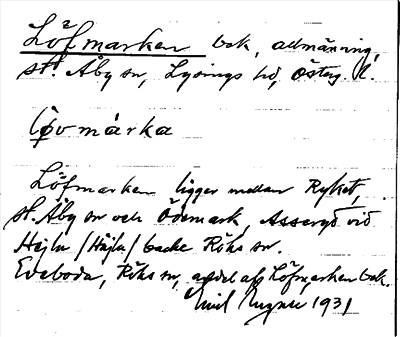 Löfmarken bek, allmänning,
st. Åby sn, Lysings hd, Österg. l.
lǫvmárka
Löfmarken ligger mellan Ryket,
st. Åby sn och Ödemark, Asseryd vid
Hejla /Häjla/ backe Röks sn.
Edeboda, Röks sn, a del af Löfmarken bek.
Emil 1931